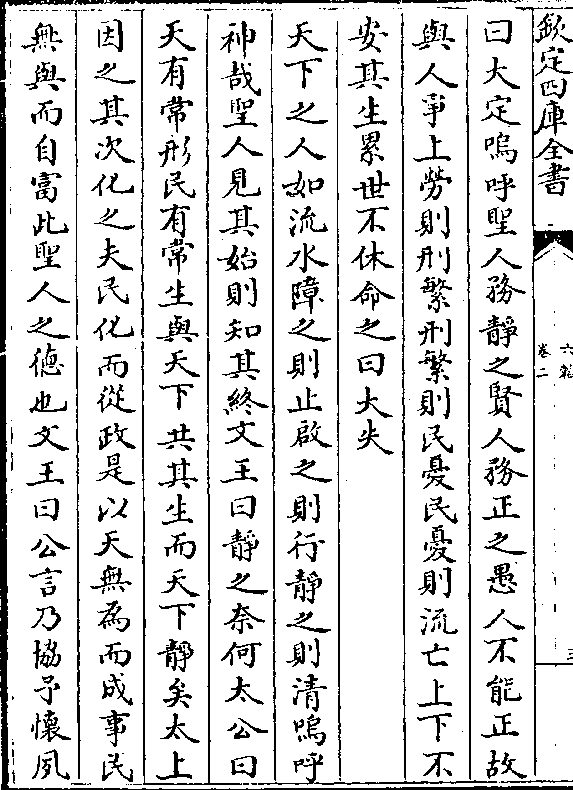 欽定四庫全書
六韜
卷二
三
曰大定嗚呼聖人務静之賢人務正之愚人不能正故
與人爭上勞則刑繁刑繁則民憂民憂則流亡上下不
安其生累世不休命之曰大失
天下之人如流水障之則止啟之則行静之則清嗚呼
神哉聖人見其始則知其終文王曰静之奈何太公曰
天有常形民有常生與天下共其生而天下静矣太上
因之其次化之夫民化而從政是以天無為而成事民
無與而自富此聖人之徳也文王曰公言乃協予懷夙